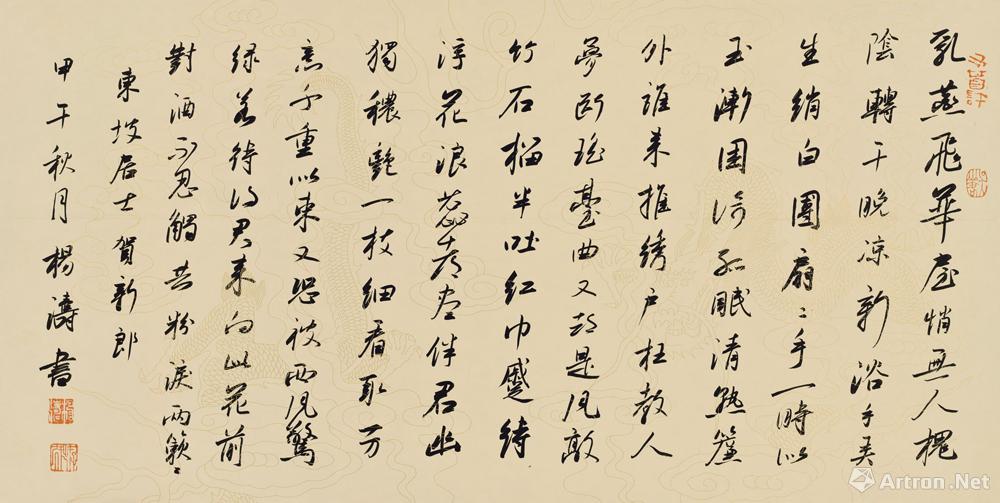 乳燕飛華屋悄無人槐
陰轉午晚凉新浴手弄
生綃白團扇〻手一時似
玉漸困倚孤眠清熟簾
外誰来推綉户枉教人
夢斷瑶臺曲又却是風敲
竹石榴半吐紅巾蹙待
浮花浪蕊都盡伴君幽
獨穠艷一枝細看取芳
意千重似束又恐被西風驚
緑若待得君来向此花前
對酒不忍觸共粉淚兩簌〻
東坡居士賀新郎
甲午秋月楊濤書
Artron.Net